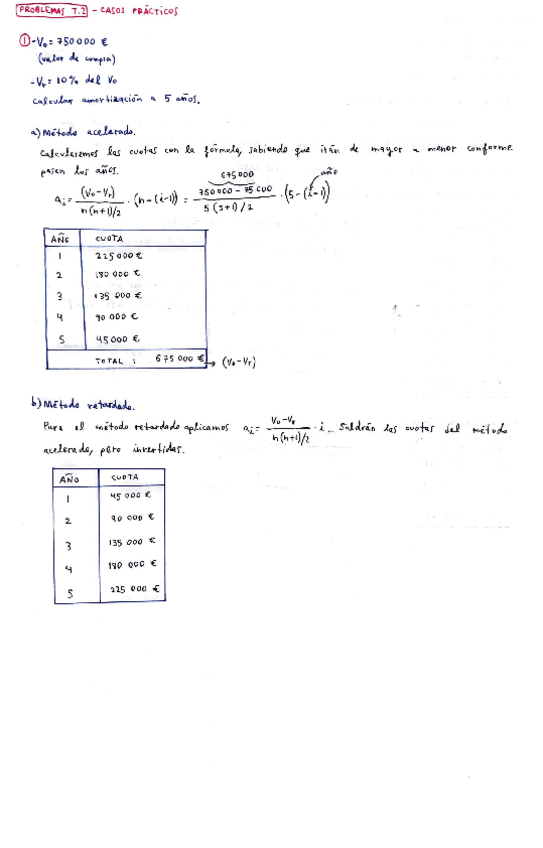 PROBLEMAS T.2 - CASOS PRÁCTICOS
① - V₀ = 750 000 €
(valor de compra)
- Vr = 10% del V₀
Calcular amortización a 5 años.
a) Método acelerado.
Calcularemos las cuotas con la fórmula, sabiendo que irán de mayor a menor conforme
pasen los años.
675000
año
aᵢ = (V₀ - Vr) / n(n+1)/2 · (n - (i-1)) = 750 000 - 75 000 / 5(5+1)/2 · (5 - (i-1))
AÑO CUOTA
1 225 000 €
2 180 000 €
3 135 000 €
4 90 000 €
5 45 000 €
TOTAL : 675 000 € → (V₀ - Vr)
b) Método retardado.
Para el método retardado aplicamos aᵢ = V₀ - Vr / n(n+1)/2 · i. Saldrán las cuotas del método
acelerado, pero invertidas.
AÑO CUOTA
1 45 000 €
2 90 000 €
3 135 000 €
4 180 000 €
5 225 000 €